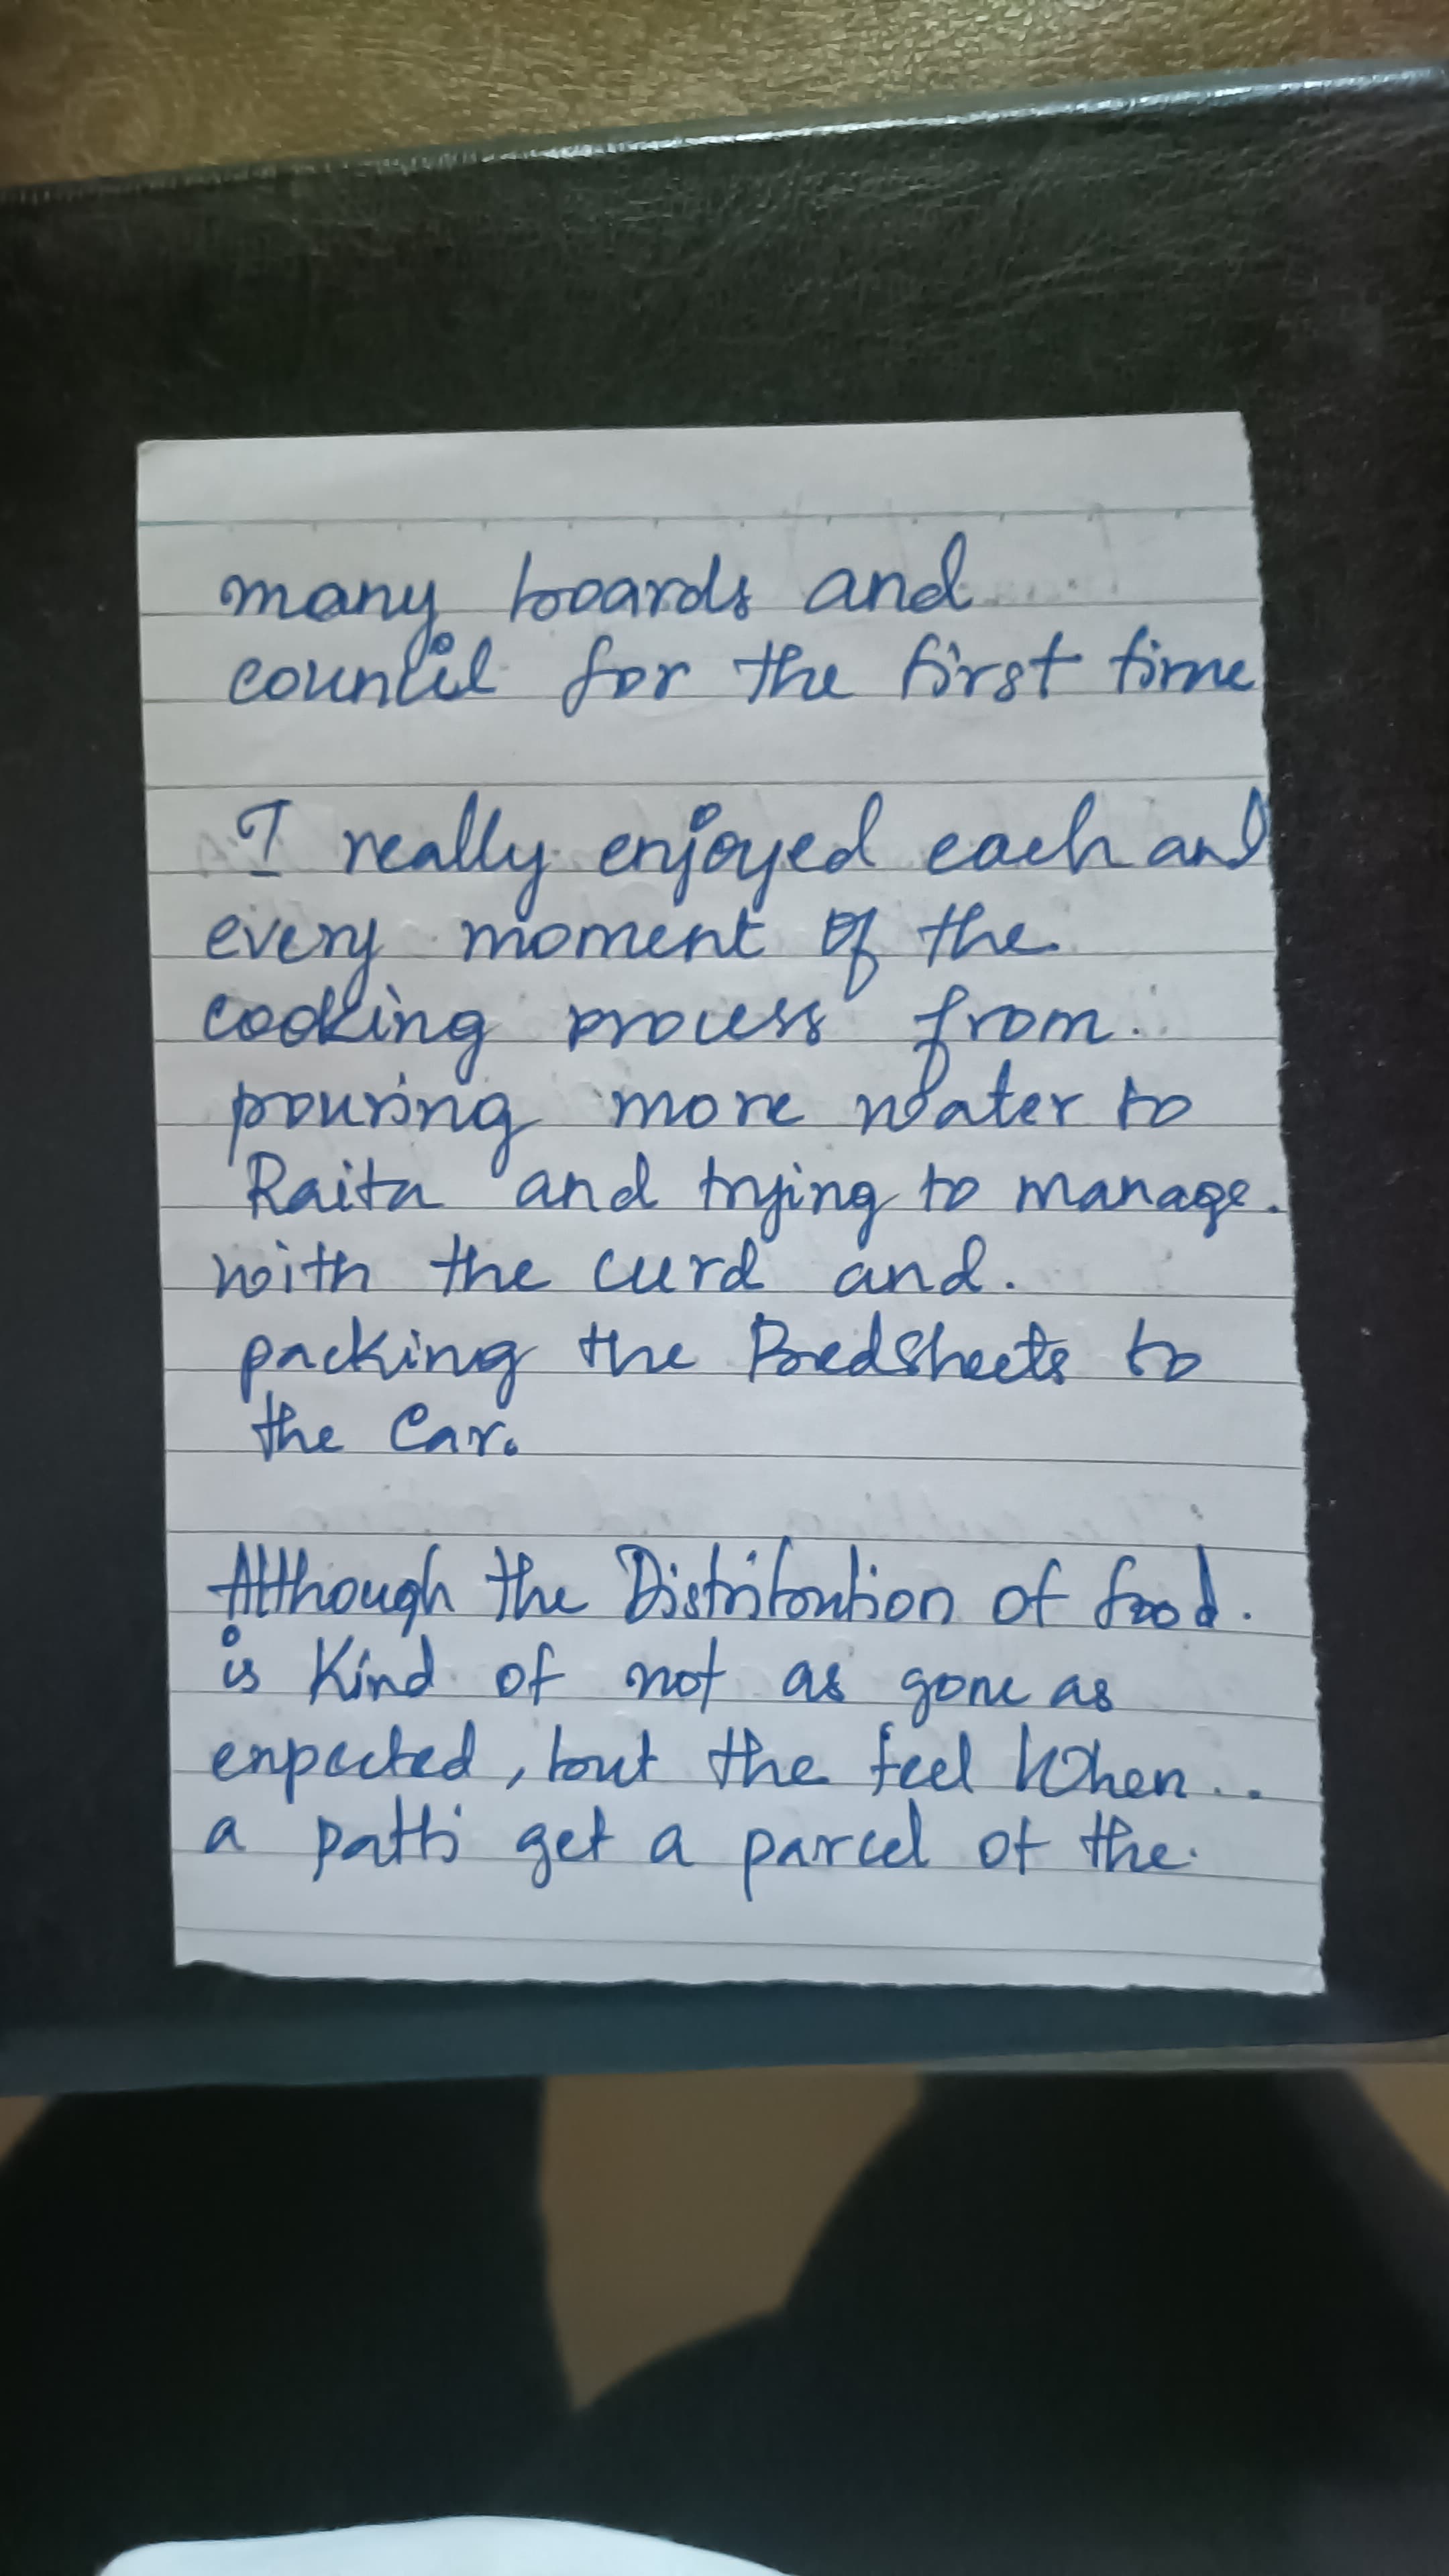 many boards and
council for the first time
I really enjoyed each and
every moment of the
cooking process from
pouring more water to
Raita and trying to manage.
with the curd and.
packing the Bedsheets to
the Car.
Although the Distribution of food.
is Kind of not as gone as
expected, but the feel When..
a patti get a parcel of the.